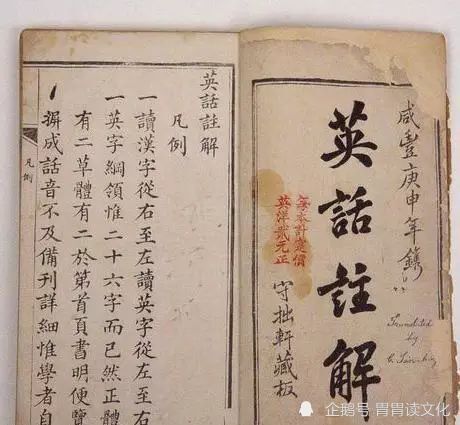 咸豐庚申年鐫
英話註解
每本計定價
英洋貳元正
守拙軒藏板
Translated
by
英話註解
凡例
一讀漢字從右至左讀英字從左至右
一英字綱領惟二十六字而已然正體
有二草體有二於第首頁書明便覽
摒成話音不及備刊詳細惟學者自
凡例
企鹅号 胄胄读文化